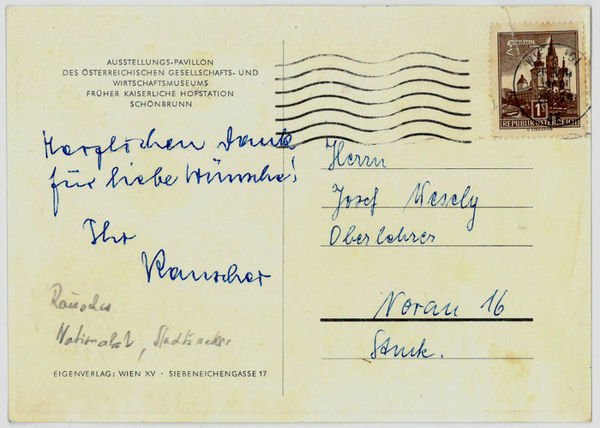 AUSSTELLUNGS-PAVILLON
DES ÖSTERREICHISCHEN GESELLSCHAFTS- UND
WIRTSCHAFTSMUSEUMS
FRÜHER KAISERLICHE HOFSTATION
SCHÖNBRUNN
Herzlichen Dank
für liebe Wünsche!
Ihr
Rauscher
Rauscher
Nationalrat,
EIGENVERLAG: WIEN XV · SIEBENEICHENGASSE 17
REPUBLIK ÖSTERREICH
Herrn
Josef Wesely
Oberlehrer
Norau 16